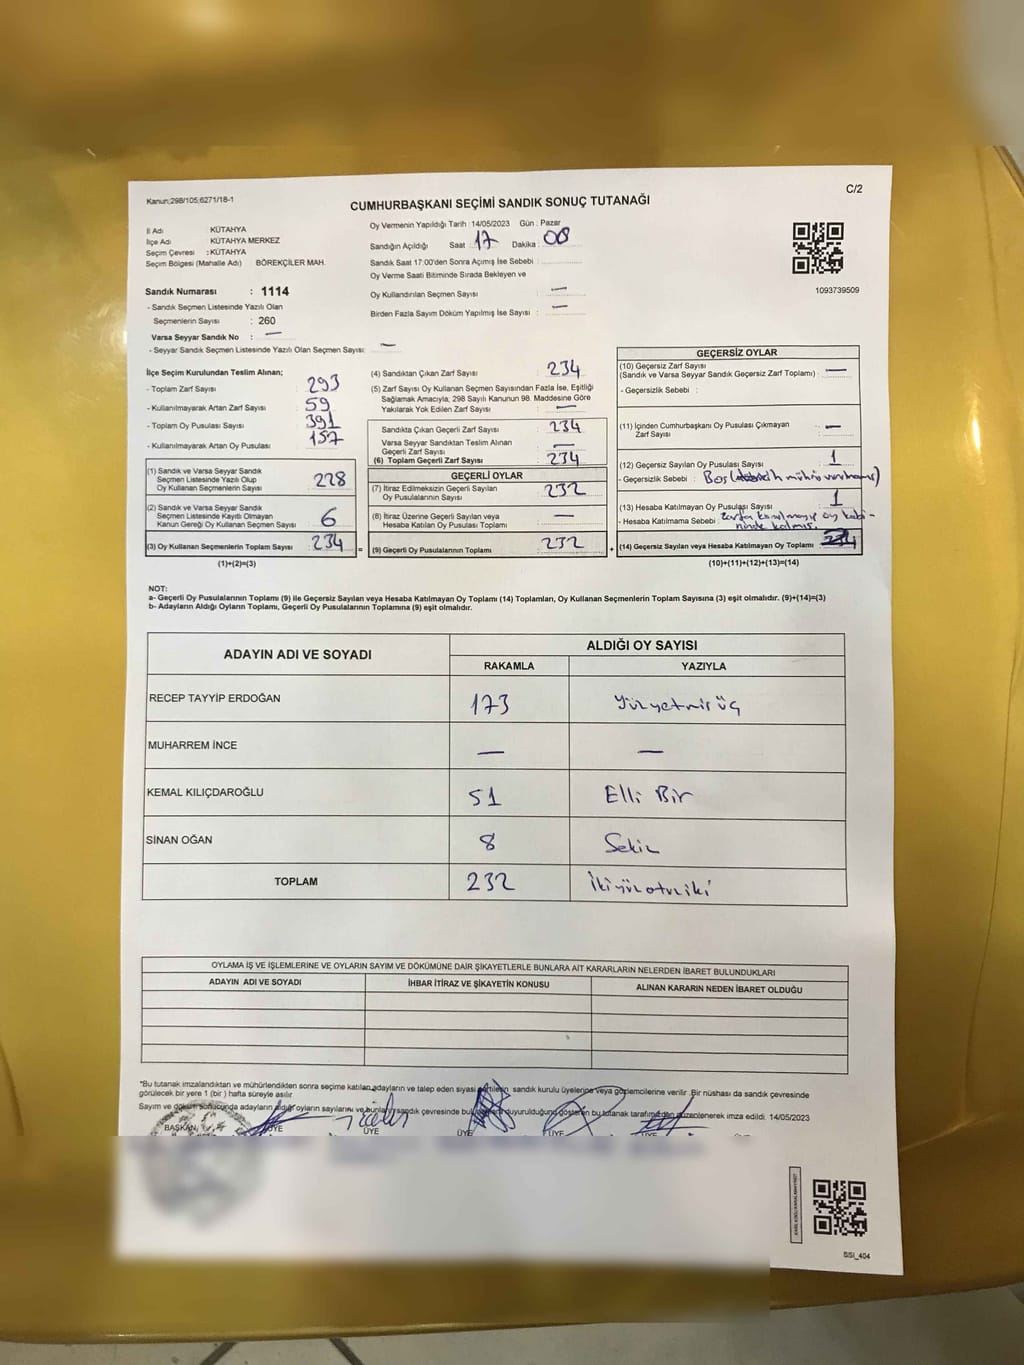 Kanun;298/105;6271/18-1
C/2
CUMHURBAŞKANI SEÇİMİ SANDIK SONUÇ TUTANAĞI
İl Adı : KÜTAHYA
İlçe Adı : KÜTAHYA MERKEZ
Seçim Çevresi : KÜTAHYA
Seçim Bölgesi (Mahalle Adı) BÖREKÇİLER MAH.
Sandık Numarası : 1114
- Sandık Seçmen Listesinde Yazılı Olan
Seçmenlerin Sayısı : 260
Varsa Seyyar Sandık No : —
- Seyyar Sandık Seçmen Listesinde Yazılı Olan Seçmen Sayısı: —
Oy Vermenin Yapıldığı Tarih : 14/05/2023 Gün : Pazar
Sandığın Açıldığı Saat : 17 Dakika : 08
Sandık Saat 17:00'den Sonra Açımış İse Sebebi :
Oy Verme Saati Bitiminde Sırada Bekleyen ve
Oy Kullandırılan Seçmen Sayısı : —
Birden Fazla Sayım Döküm Yapılmış İse Sayısı : —
1093739509
İlçe Seçim Kurulundan Teslim Alınan;
- Toplam Zarf Sayısı : 293
- Kullanılmayarak Artan Zarf Sayısı : 59
- Toplam Oy Pusulası Sayısı : 391
- Kullanılmayarak Artan Oy Pusulası : 157
(1) Sandık ve Varsa Seyyar Sandık
Seçmen Listesinde Yazılı Olup
Oy Kullanan Seçmenlerin Sayısı 228
(2) Sandık ve Varsa Seyyar Sandık
Seçmen Listesinde Kayıtlı Olmayan
Kanun Gereği Oy Kullanan Seçmen Sayısı 6
(3) Oy Kullanan Seçmenlerin Toplam Sayısı 234 =
(1)+(2)=(3)
(4) Sandıktan Çıkan Zarf Sayısı : 234
(5) Zarf Sayısı Oy Kullanan Seçmen Sayısından Fazla İse, Eşitliği
Sağlamak Amacıyla; 298 Sayılı Kanunun 98. Maddesine Göre
Yakılarak Yok Edilen Zarf Sayısı : —
Sandıkta Çıkan Geçerli Zarf Sayısı : 234
Varsa Seyyar Sandıktan Teslim Alınan
Geçerli Zarf Sayısı : —
(6) Toplam Geçerli Zarf Sayısı : 234
GEÇERLİ OYLAR
(7) İtiraz Edilmeksizin Geçerli Sayılan
Oy Pusulalarının Sayısı : 232
(8) İtiraz Üzerine Geçerli Sayılan veya
Hesaba Katılan Oy Pusulası Toplamı : —
(9) Geçerli Oy Pusulalarının Toplamı : 232 +
GEÇERSİZ OYLAR
(10) Geçersiz Zarf Sayısı
(Sandık ve Varsa Seyyar Sandık Geçersiz Zarf Toplamı) : —
- Geçersizlik Sebebi :
(11) İçinden Cumhurbaşkanı Oy Pusulası Çıkmayan
Zarf Sayısı : —
(12) Geçersiz Sayılan Oy Pusulası Sayısı : 1
- Geçersizlik Sebebi : Boş
(13) Hesaba Katılmayan Oy Pusulası Sayısı : 1
- Hesaba Katılmama Sebebi : Zarfa konulmayıp oy kabi-
ninde kalmış.
(14) Geçersiz Sayılan veya Hesaba Katılmayan Oy Toplamı
(10)+(11)+(12)+(13)=(14)
NOT:
a- Geçerli Oy Pusulalarının Toplamı (9) ile Geçersiz Sayılan veya Hesaba Katılmayan Oy Toplamı (14) Toplamları, Oy Kullanan Seçmenlerin Toplam Sayısına (3) eşit olmalıdır. (9)+(14)=(3)
b- Adayların Aldığı Oyların Toplamı, Geçerli Oy Pusulalarının Toplamına (9) eşit olmalıdır.
ADAYIN ADI VE SOYADI
ALDIĞI OY SAYISI
RAKAMLA YAZIYLA
RECEP TAYYİP ERDOĞAN 173 Yüzyetmişüç
MUHARREM İNCE — —
KEMAL KILIÇDAROĞLU 51 Elli Bir
SİNAN OĞAN 8 Sekiz
TOPLAM 232 İkiyüzotuziki
OYLAMA İŞ VE İŞLEMLERİNE VE OYLARIN SAYIM VE DÖKÜMÜNE DAİR ŞİKAYETLERLE BUNLARA AİT KARARLARIN NELERDEN İBARET BULUNDUKLARI
ADAYIN ADI VE SOYADI İHBAR İTİRAZ VE ŞİKAYETİN KONUSU ALINAN KARARIN NEDEN İBARET OLDUĞU
*Bu tutanak imzalandıktan ve mühürlendikten sonra seçime katılan adayların ve talep eden siyasi partilerin sandık kurulu üyelerine veya gözlemcilerine verilir. Bir nüshası da sandık çevresinde
görülecek bir yere 1 (bir ) hafta süreyle asılır
Sayım ve döküm sonucunda adayların aldığı oyların sayılarını ve bunların sandık çevresinde duyurulduğunu gösteren bu tutanak tarafımızdan düzenlenerek imza edildi. 14/05/2023
BAŞKAN ÜYE ÜYE ÜYE ÜYE ÜYE
SSI_404